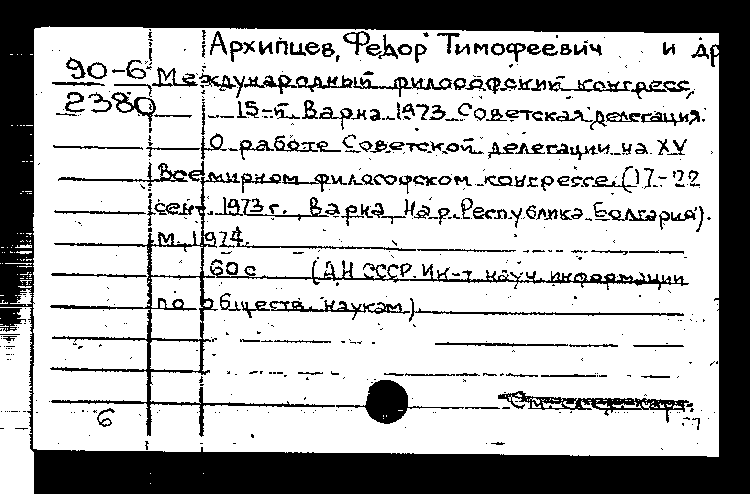 Архипцев, Федор Тимофеевич и др
90-6 Международный философский конгресс,
2380 15-й. Варна. 1973. Советская делегация.
О работе Советской делегации на XV
Всемирном философском конгрессе. (17-22
сент. 1973 г., Варна, Нар. Республика Болгария).
М., 1974.
60 с (АН СССР. Ин-т науч. информации
по обществ. наукам).
См. след. карт.
6